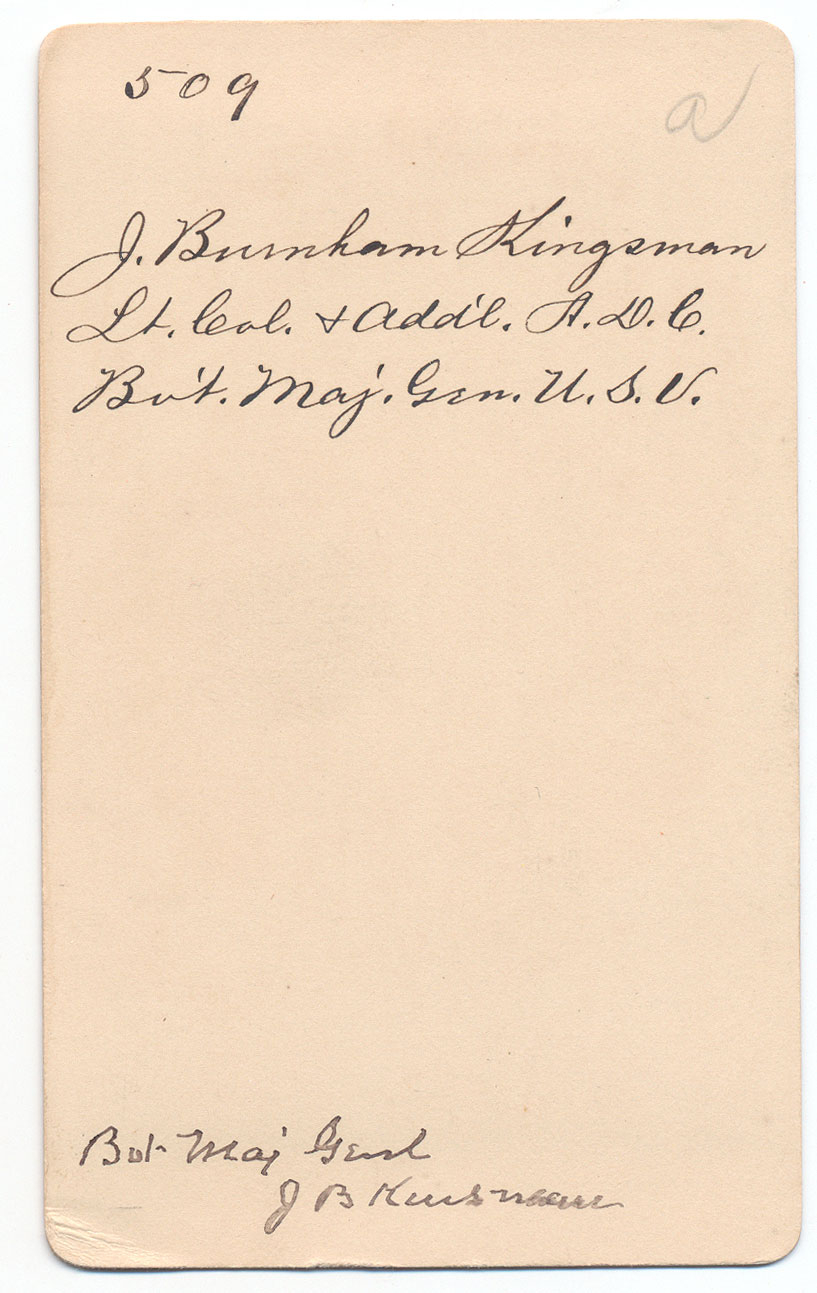 509
a
J. Burnham Kingsman
Lt. Col. & Add'l. A.D.C.
Bv't. Maj. Gen. U.S.V.
Bvt Maj Genl
J B Kinsman